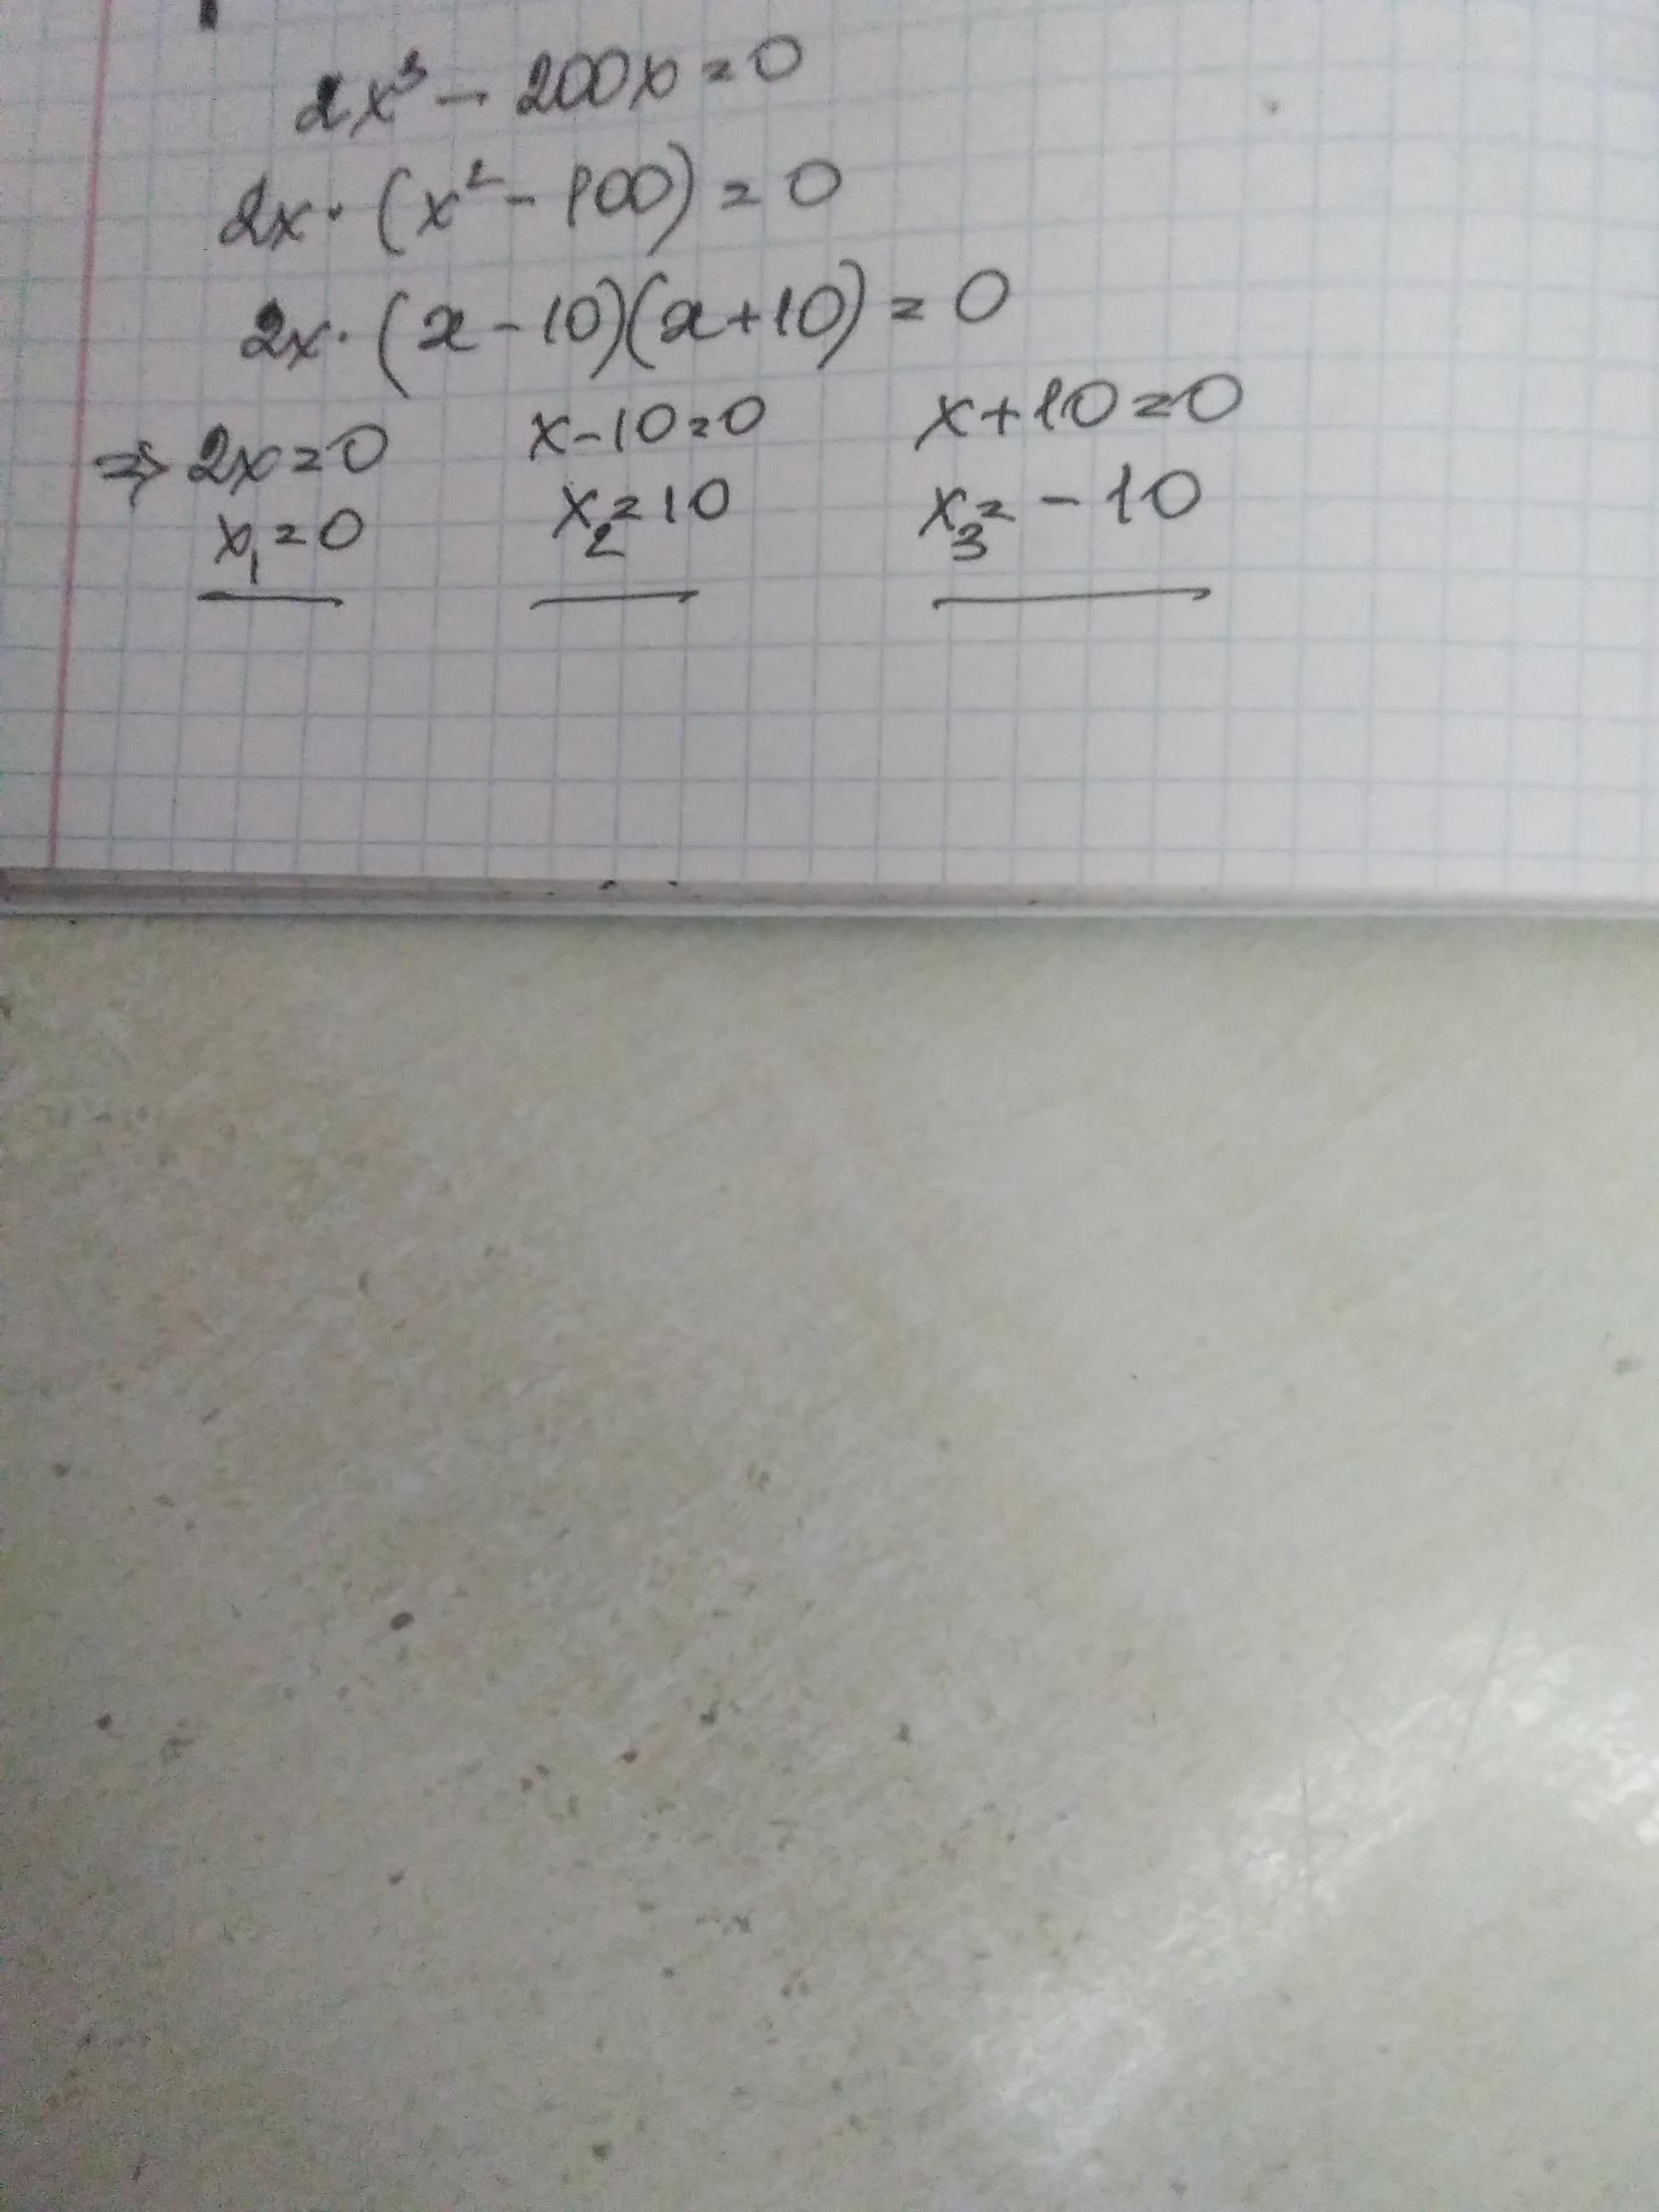 2x³ - 200x = 0
2x · (x² - 100) = 0
2x · (x - 10)(x + 10) = 0
⇒ 2x = 0 x - 10 = 0 x + 10 = 0
x₁ = 0 x₂ = 10 x₃ = - 10